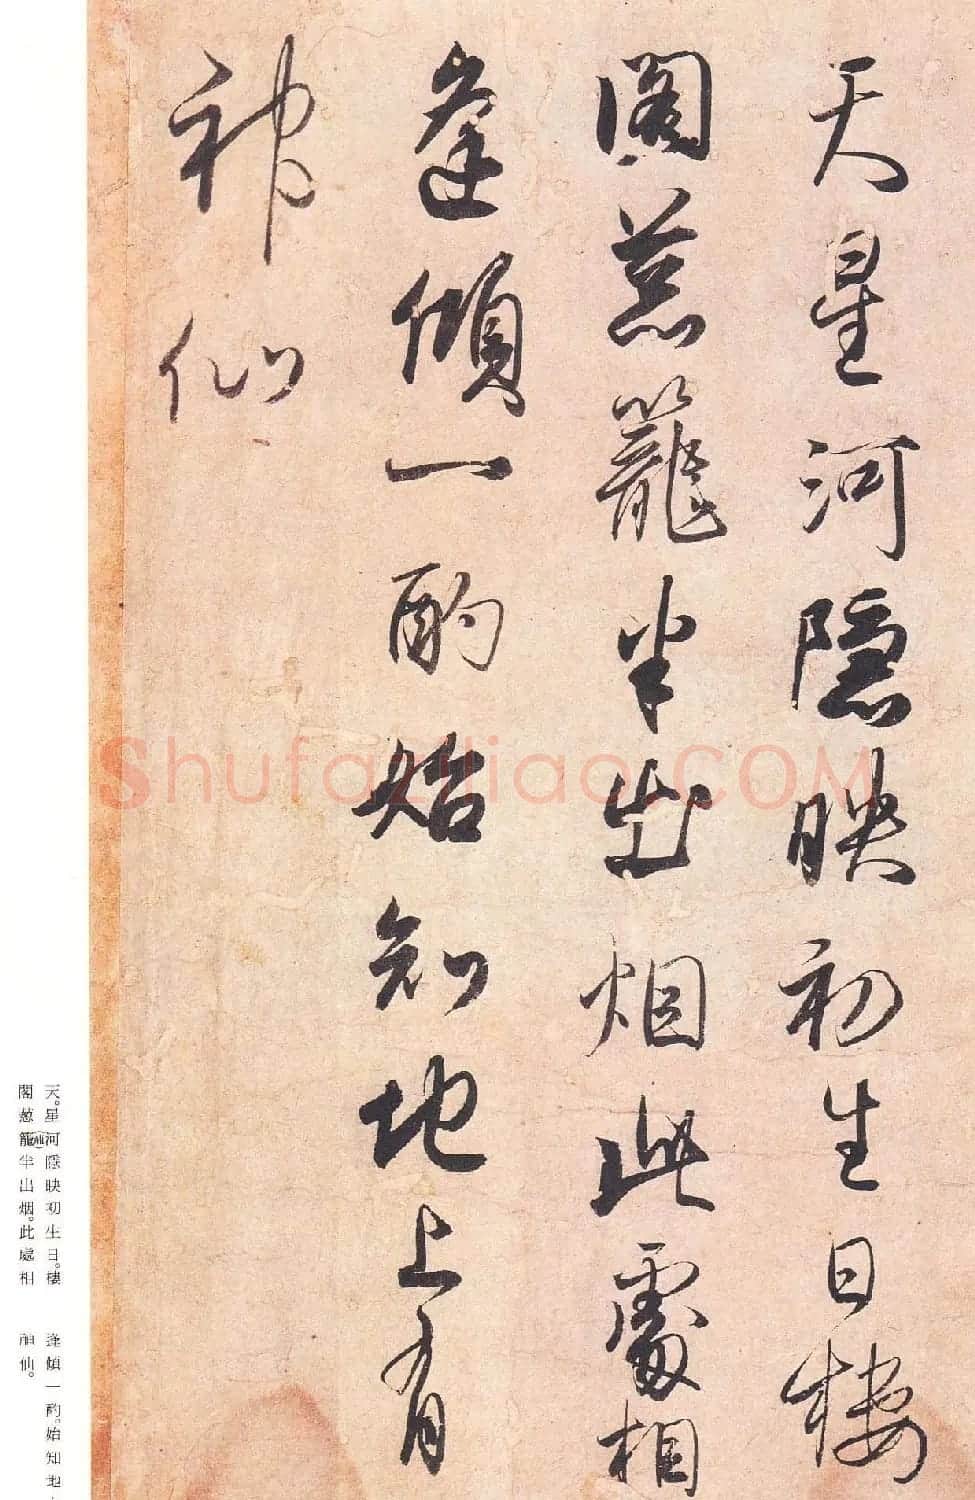 天星河隱映初生日樓
閣葱籠半出烟此處相
逢傾一酌始知地上有
神仙
天。星河隱映初生日。樓
閣葱籠半出烟。此處相
逢傾一酌。始知地
神仙。
Shufaziliao.COM